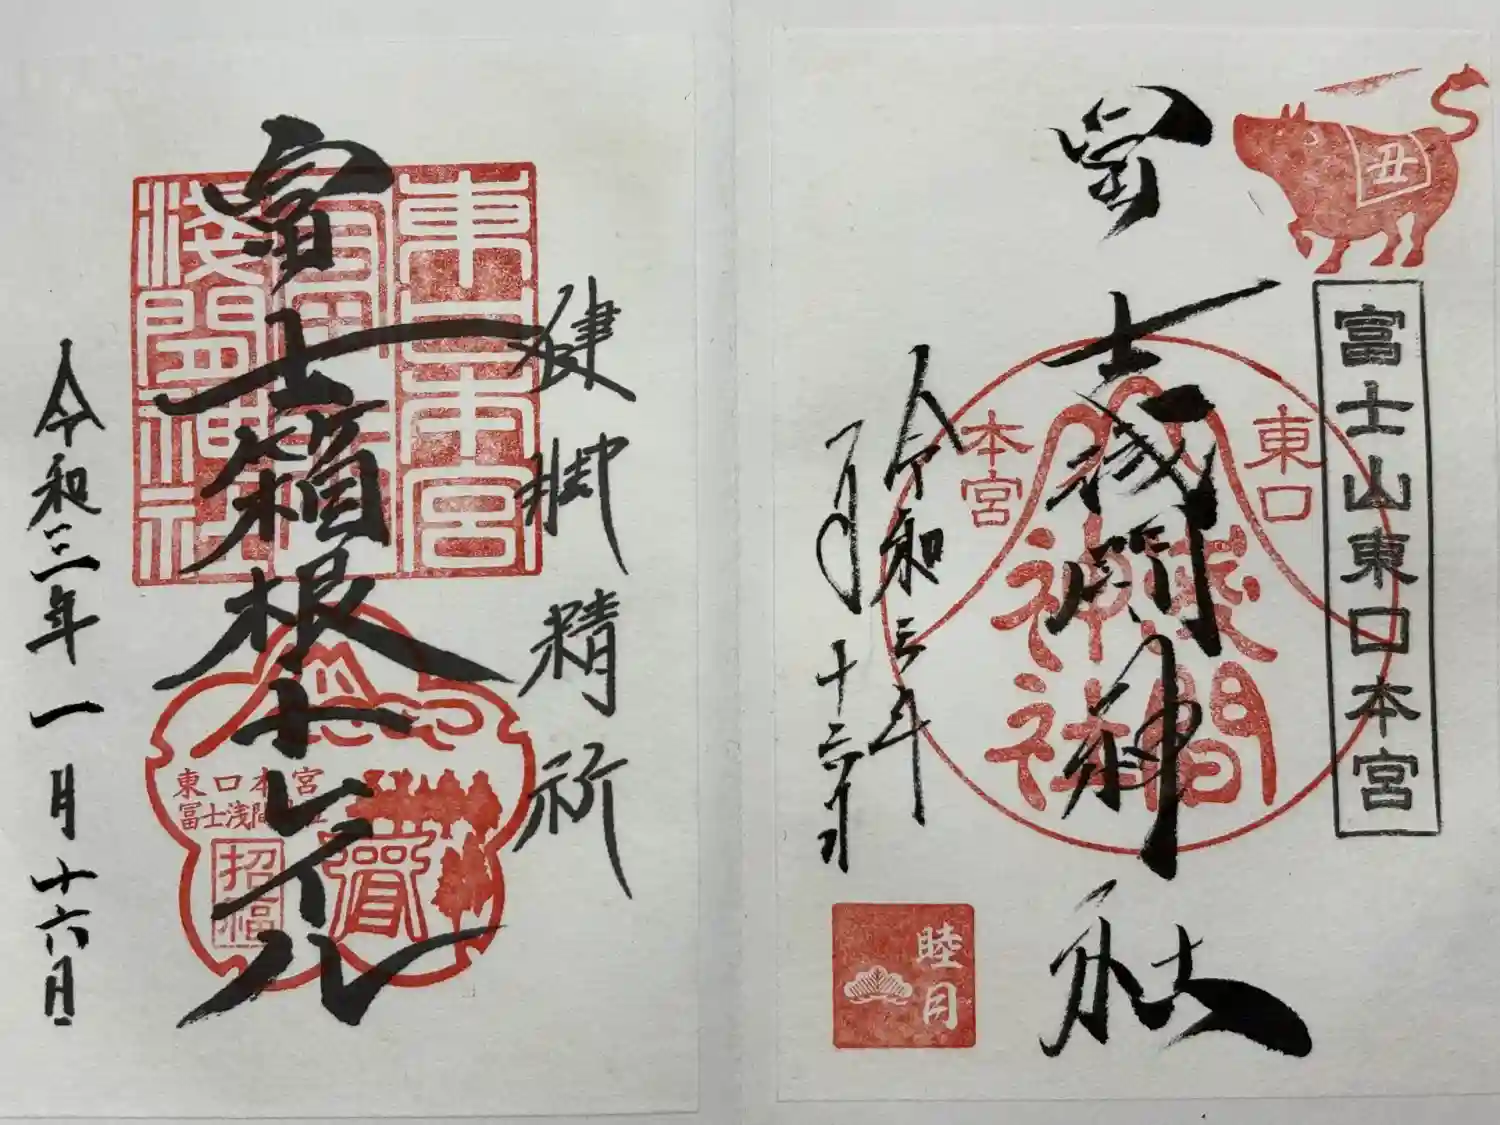 丑
富士山東口本宮
冨士浅間神社
東口
本宮
浅間
神社
令和三年
一月
十六日
睦月
健脚精祈
東口本宮
冨士浅間神社
富士箱根トレイル
東口本宮
冨士浅間
招福
令和三年一月十六日